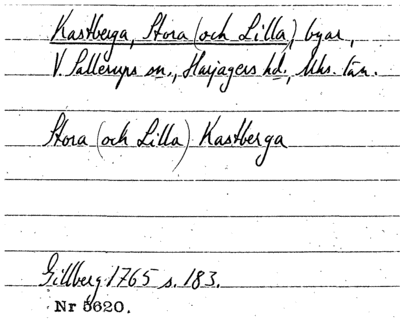 Kastberga, Stora (och Lilla), byar,
V. Sallerups sn., Harjagers hd., Mhs. län.
Stora (och Lilla) Kastberga
Gillberg 1765 s. 183.
Nr 5620.